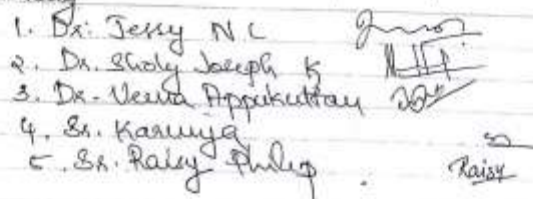 1. Dr. Jessy N C
2. Dr. Sholy Joseph K
3. Dr. Veena Appukuttan
4. Sr. Karunya
5. Sr. Raisy Philip Raisy